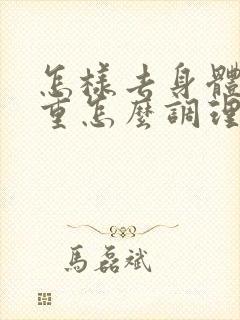 怎樣去身體
重怎麼調理
馬磊斌